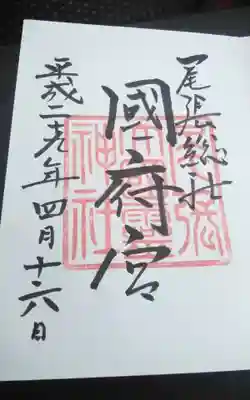 尾張総社
國府宮
平成二十九年四月十六日